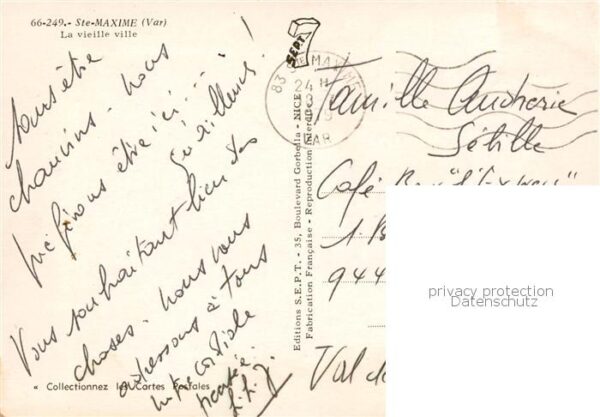 66-249.- Ste-MAXIME (Var)
La vieille ville
sans être
chauvins - nous
préférons être ici...
qu'ailleurs !
Vous souhaitant bien des
choses - nous vous
adressons à tous
notre cordiale
pensée.
« Collectionnez les Cartes Postales
Editions S.E.P.T. - 35, Boulevard Gorbella - NICE
Fabrication Française - Reproduction Interdite
SEPT
83 Ste MAXIME
24 H
VAR
Famille
Café Bar
1.
944
Val de
privacy protection
Datenschutz